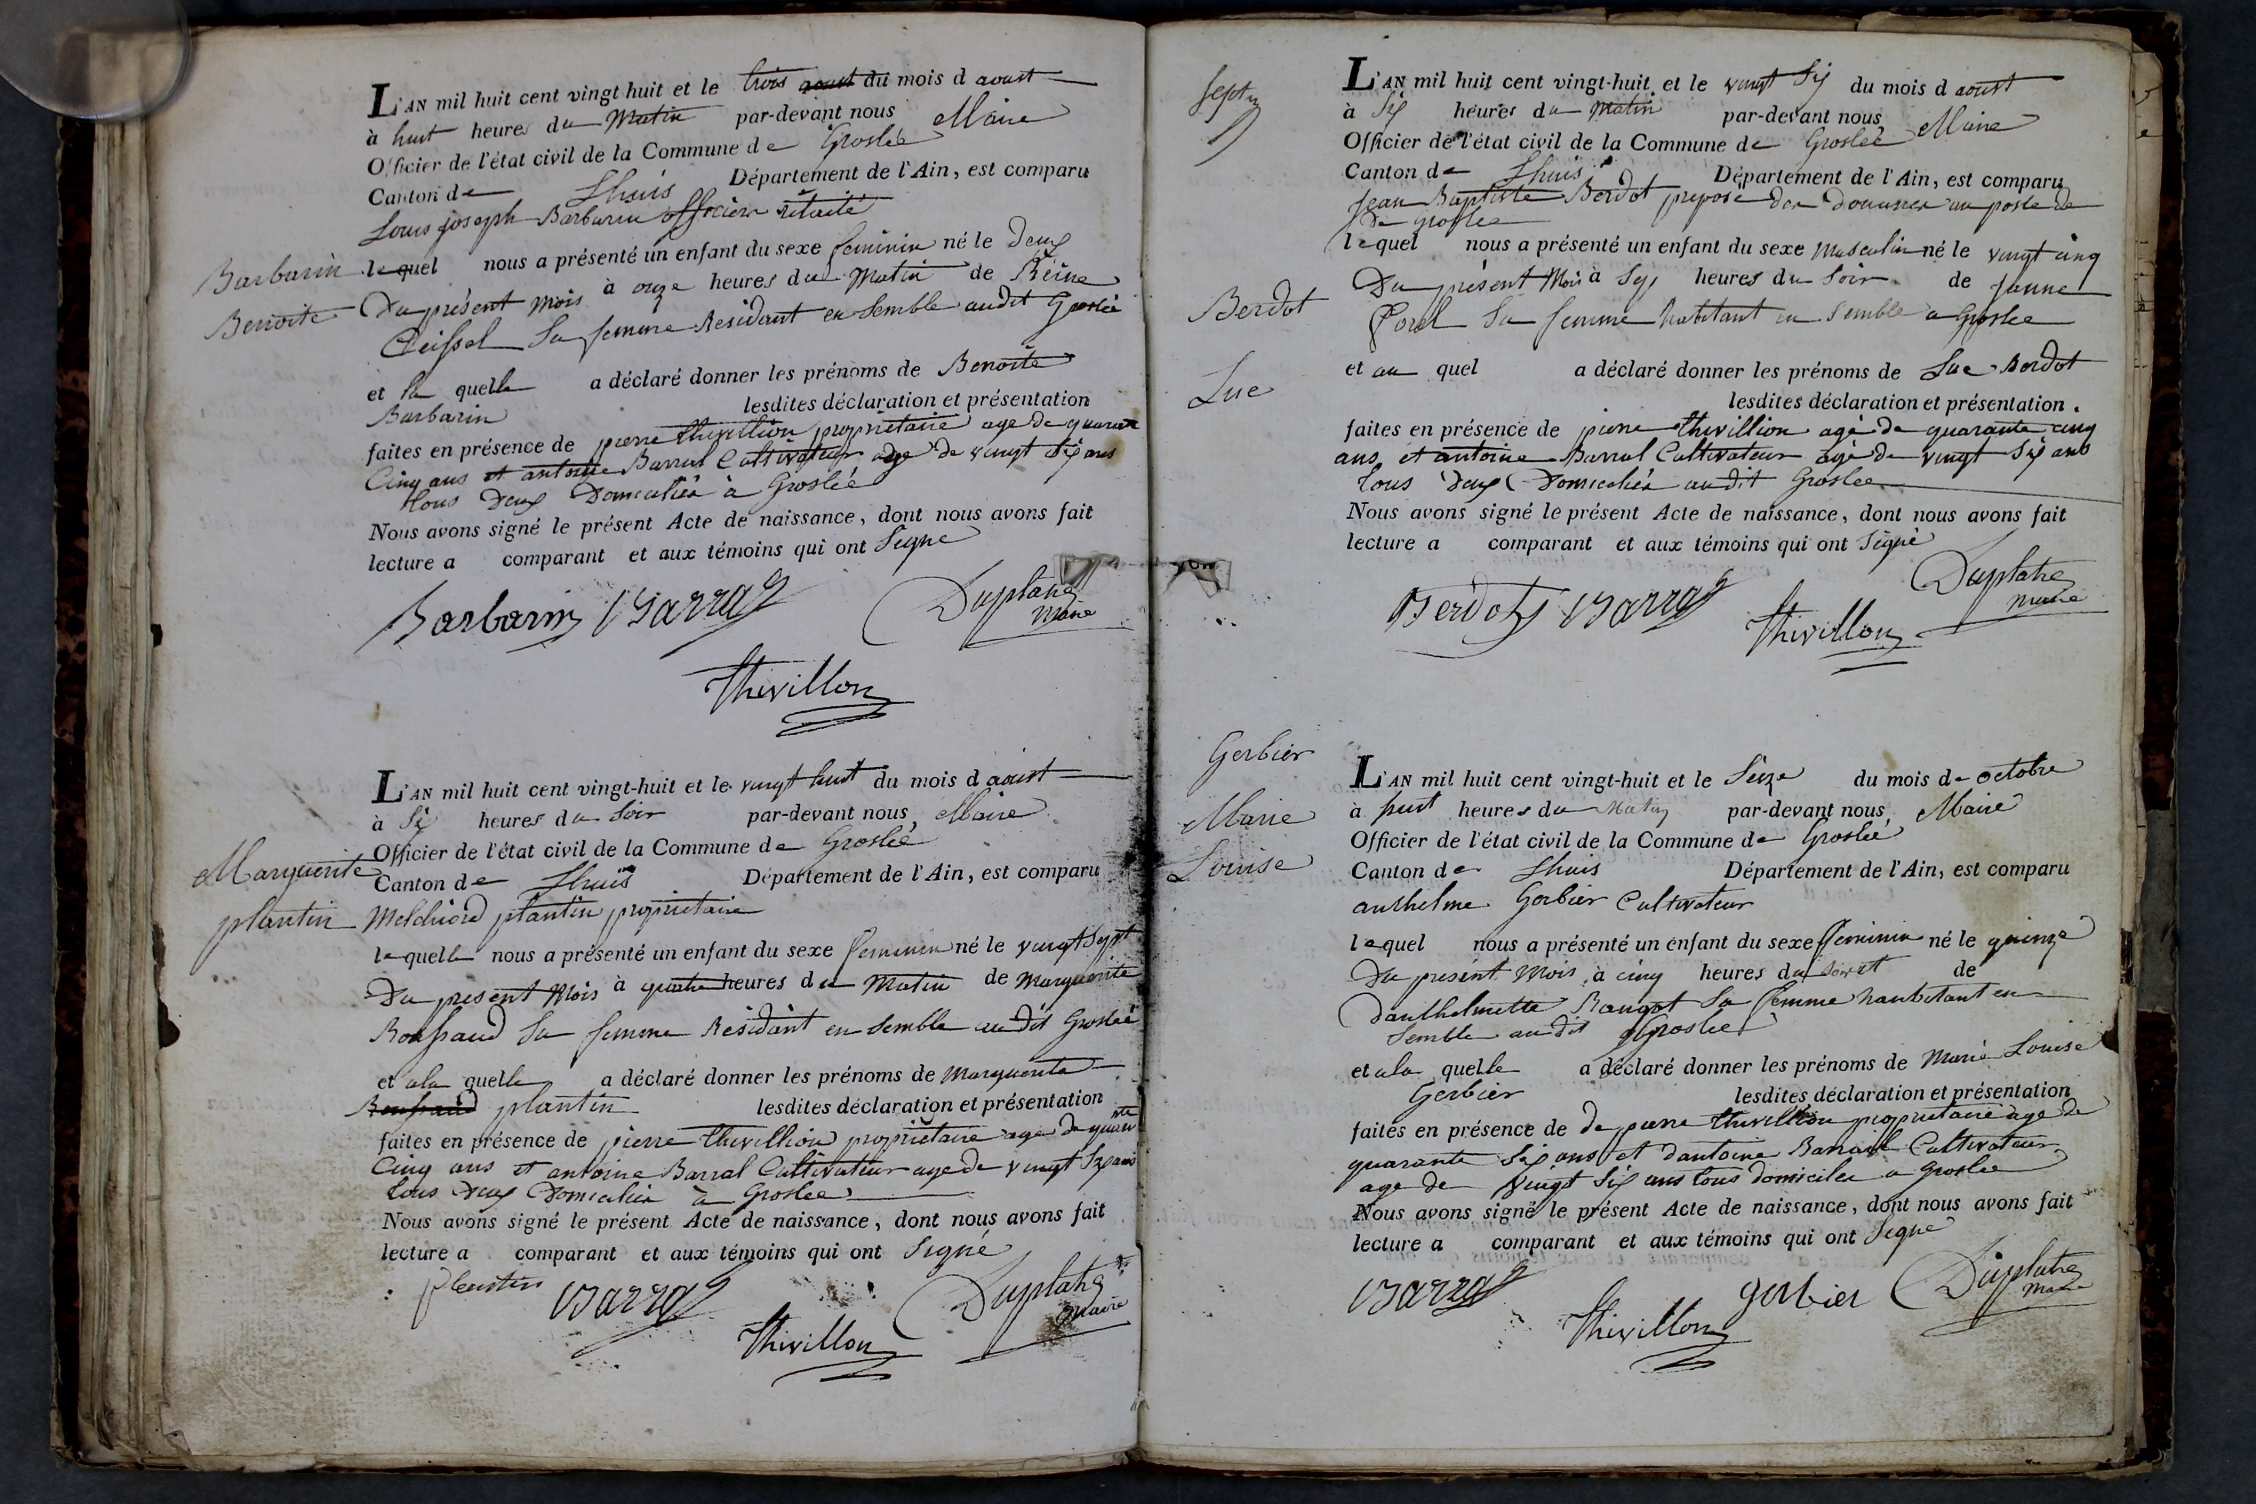 L'AN mil huit cent vingt huit et le trois aoust du mois d aoust
à huit heures du Matin par-devant nous Maire
Officier de l'état civil de la Commune de Groslée
Canton de Lhuis Département de l'Ain, est comparu
Louis joseph Barbarin officier retraité
Barbarin
lequel nous a présenté un enfant du sexe feminin né le deux
Benoite
Du présent mois à onze heures du Matin de Réine
Ceissel Sa femme Residant en Semble audit Groslée
et la quelle a déclaré donner les prénoms de Benoite
Barbarin lesdites déclaration et présentation
faites en présence de pierre thivillion propriétaire age de quarante
Cinq ans et antoine Barral Cultivateur age de vingt Six ans
tous Deux Domiciliés à Groslée
Nous avons signé le présent Acte de naissance, dont nous avons fait
lecture a comparant et aux témoins qui ont Signé
Barbarin Barral Duplatre
Maire
Thivillon
L'AN mil huit cent vingt-huit et le vingt huit du mois d aoust
à Six heures du Soir par-devant nous Maire
Officier de l'état civil de la Commune de Groslée
Marguerite
Canton de Lhuis Département de l'Ain, est comparu
plantin
Melchiord plantin propriétaire
lequelle nous a présenté un enfant du sexe feminin né le vingt Sept
Du present Mois à quatre heures du Matin de Marguerite
Sa femme Résidant en Semble au dit Groslée
et ala quelle a déclaré donner les prénoms de Marguerite
plantin lesdites déclaration et présentation
faites en présence de pierre thivillion propriétaire age de quarante
Cinq ans et antoine Barral Cultivateur age de vingt Six ans
tous Deux Domiciliés à Groslée
Nous avons signé le présent Acte de naissance, dont nous avons fait
lecture a comparant et aux témoins qui ont Signé
plantin Barral Duplatre
Maire
Thivillon
Sept
L'AN mil huit cent vingt-huit et le vingt Six du mois d aoust
à Six heures du Matin par-devant nous Maire
Officier de l'état civil de la Commune de Groslée
Canton de Lhuis Département de l'Ain, est comparu
Jean Baptiste Berdot preposé des Douannes au poste de
De Groslée
lequel nous a présenté un enfant du sexe Masculin né le vingt cinq
Du présent Mois à Sept heures du Soir de Janne
Berdot
Sa femme habitant en Semble a Groslée
et au quel a déclaré donner les prénoms de Luc Berdot
Luc
lesdites déclaration et présentation.
faites en présence de pierre thivillion age de quarante cinq
ans et antoine Barral Cultivateur agé de vingt Six ans
tous Deux Domiciliés au dit Groslée
Nous avons signé le présent Acte de naissance, dont nous avons fait
lecture a comparant et aux témoins qui ont Signé
Berdot Barral Duplatre
Maire
Thivillon
Gerbier
Marie
Louise
L'AN mil huit cent vingt-huit et le Seize du mois de octobre
à huit heures du Matin par-devant nous, Maire
Officier de l'état civil de la Commune de Groslée
Canton de Lhuis Département de l'Ain, est comparu
anthelme Gerbier Cultivateur
lequel nous a présenté un enfant du sexe feminin né le quinze
Du present Mois à cinq heures du Soir et de
Danthelmette Sa femme haubitant en
Semble au dit Groslée
et ala quelle a déclaré donner les prénoms de Marie Louise
Gerbier lesdites déclaration et présentation
faites en présence de de pierre thivillion propriétaire age de
quarante Six ans et dantoine Barral Cultivateur
age de Vingt Six ans tous domiciles a Groslée
Nous avons signé le présent Acte de naissance, dont nous avons fait
lecture a comparant et aux témoins qui ont Signé
Barral gerbier Duplatre
Maire
Thivillon